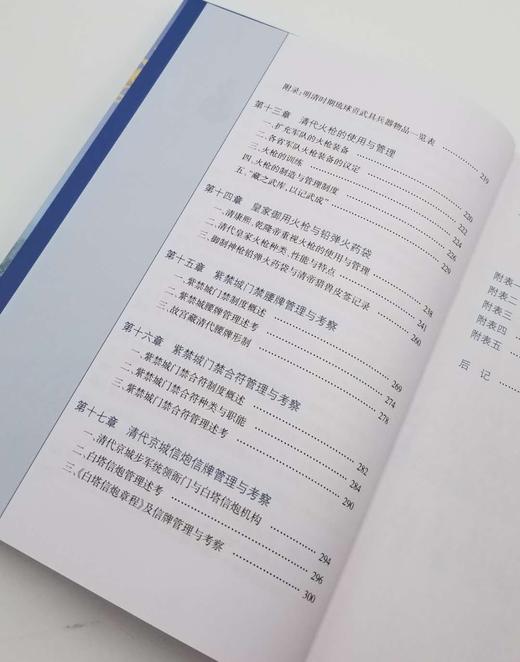 附录:明清时期琉球贡武具兵器物品一览表 ………… 219
第十三章 清代火枪的使用与管理
一、扩充军队的火枪装备 ………… 220
二、各省军队火枪装备的议定 ………… 222
三、火枪的训练 ………… 224
四、火枪的制造与管理制度 ………… 226
五、“藏之武库,以记武成” ………… 229
第十四章 皇家御用火枪与铅弹火药袋
一、清康熙、乾隆帝重视火枪的使用与管理 ………… 238
二、清代皇家火枪种类、性能与特点 ………… 241
三、御制神枪铅弹火药袋与清帝猎兽皮签记录 ………… 260
第十五章 紫禁城门禁腰牌管理与考察
一、紫禁城门禁制度概述 ………… 269
二、紫禁城腰牌管理述考 ………… 274
三、故宫藏清代腰牌形制 ………… 278
第十六章 紫禁城门禁合符管理与考察
一、紫禁城门禁合符制度概述 ………… 282
二、紫禁城门禁合符种类与职能 ………… 284
三、紫禁城门禁合符管理述考 ………… 290
第十七章 清代京城信炮信牌管理与考察
一、清代京城步军统领衙门与白塔信炮机构 ………… 294
二、白塔信炮管理述考 ………… 296
三、《白塔信炮章程》及信牌管理与考察 ………… 300
附表一
附表二
附表三
附表四
附表五
后记